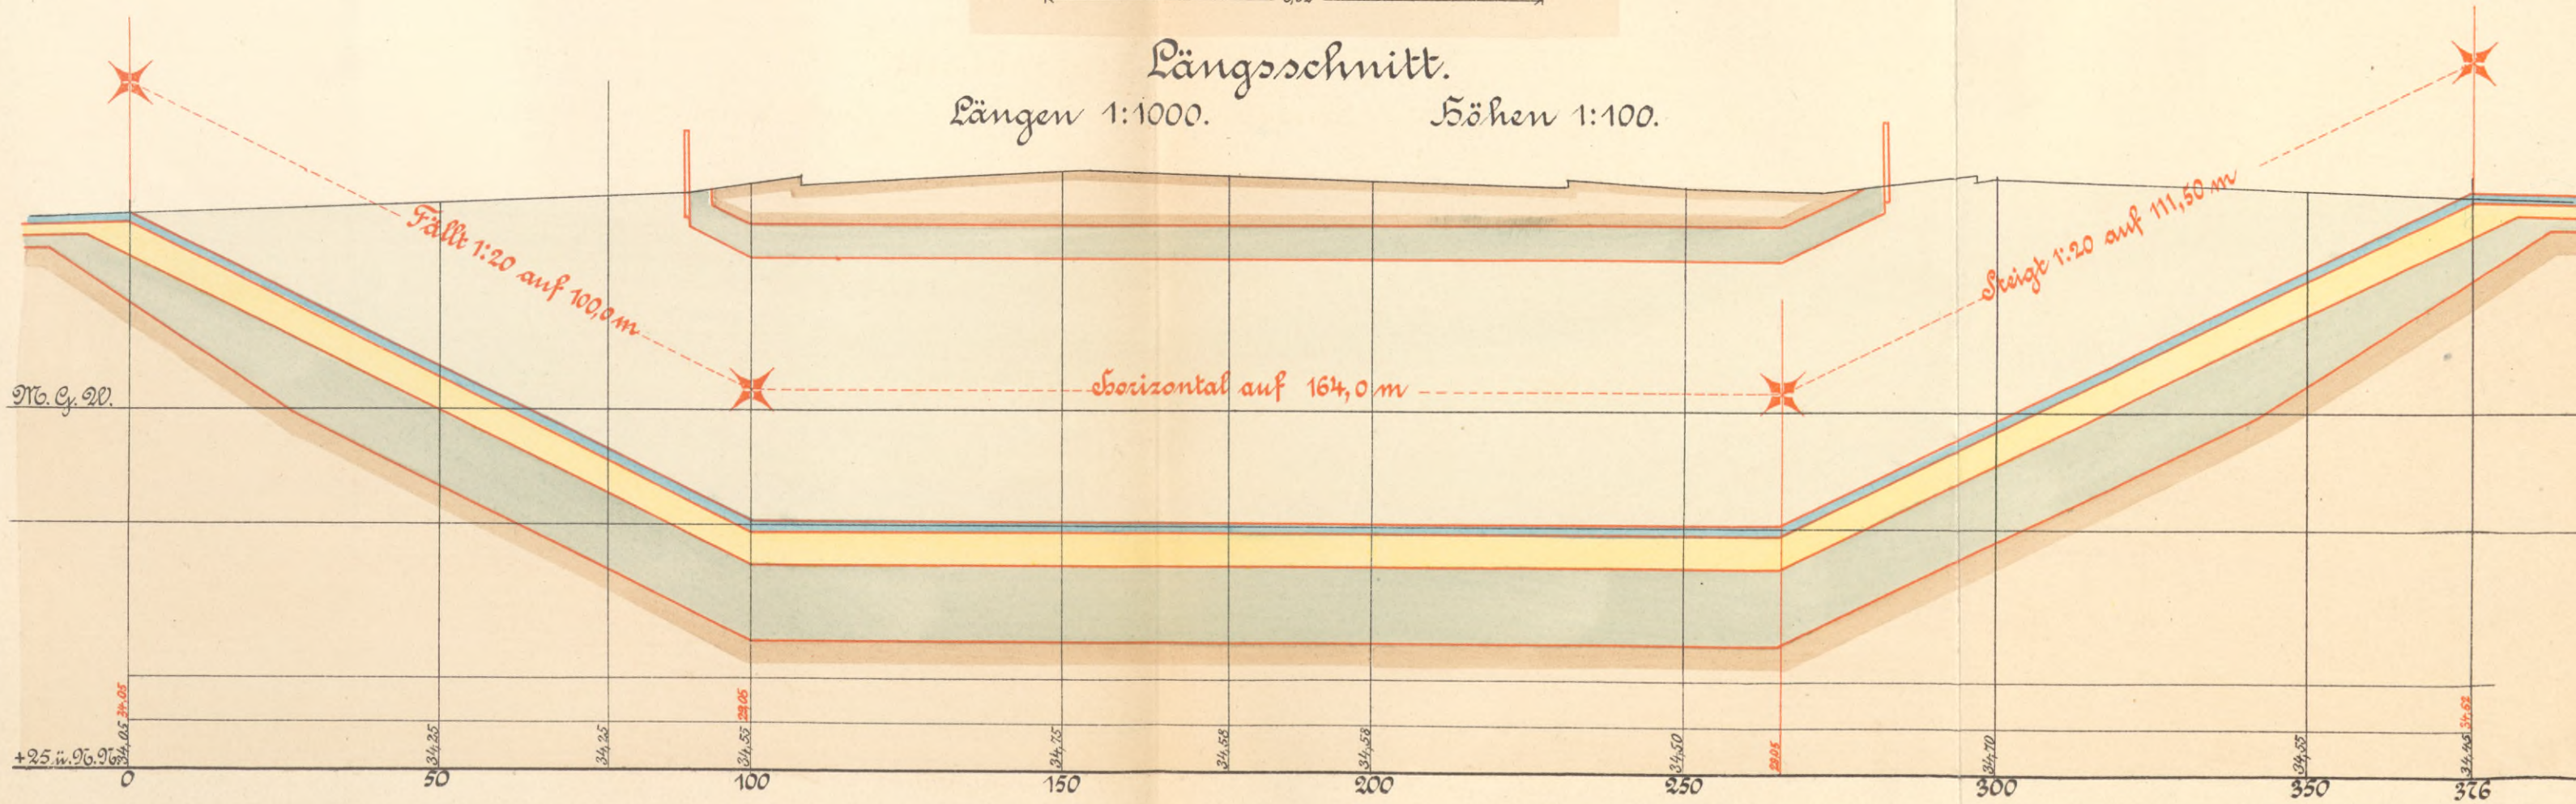 Längsschnitt.
Längen 1:1000. Höhen 1:100.
Fällt 1:20 auf 100,0 m
Horizontal auf 164,0 m
Steigt 1:20 auf 111,50 m
M. G. W.
34.05 29.05 29.05 34.62
34,05 34,25 34,25 34,55 34,75 34,58 34,53 34,50 34,70 34,55 34,45
+25 ü. N. N.
0 50 100 150 200 250 300 350 376